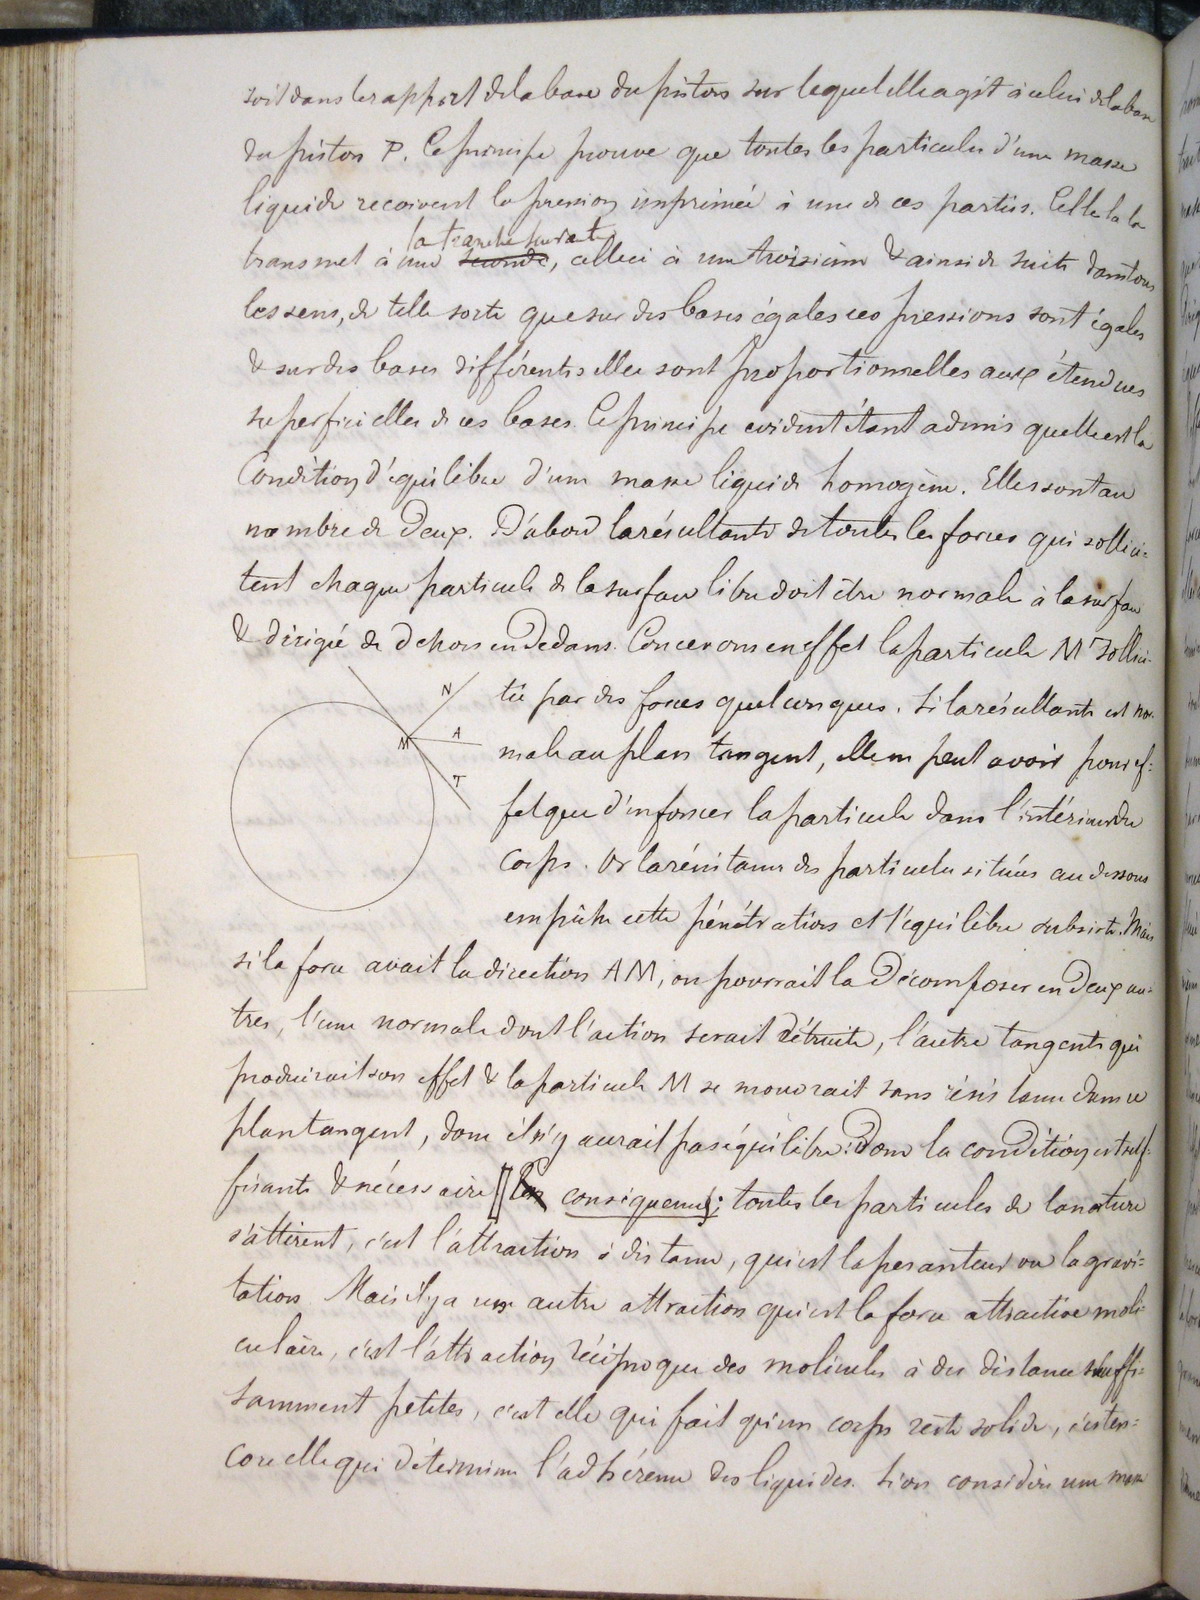 soit dans le rapport de la base du piston sur lequel elle agit à celui de la base
du piston P. Ce principe prouve que toutes les particules d'une masse
liquide reçoivent la pression imprimée à une de ces parties. Celle là la
la tranche suivante
transmet à une seconde, celleci à une troisième & ainsi de suite dans tous
les sens, de telle sorte que sur des bases égales ces pressions sont égales
& sur des bases différentes elles sont proportionnelles aux étendues
superficielles de ces bases. Ce principe evident étant admis quelle est la
Condition d'équilibre d'une masse liquide homogène. Elles sont au
nombre de Deux. D'abord la résultante de toutes les forces qui sollici=
tent chaque particule de la surface libre doit être normale à la surface
& dirigée de dehors en Dedans. Concevons en effet la particule M sollici-
tée par des forces quelconques. Si la résultante est nor-
male au plan tangent, elle ne peut avoir pour ef=
fet que d'enfoncer la particule dans l'intérieur du
corps. Or la résistance des particules situées au dessous
empêche cette pénétration et l'équilibre subsiste. Mais
N
M
A
T
si la force avait la direction AM, on pourrait la Décomposer en Deux au=
tres, l'une normale dont l'action serait détruite, l'autre tangente qui
produirait son effet & la particule M se mouvrait sans résistance dans ce
plan tangent, donc il n'y aurait pas équilibre: Donc la condition est suf-
fisante & nécessaire conséquence; toutes les particules de la nature
s'attirent, c'est l'attraction à distance, qui est la pesanteur ou la gravi=
tation. Mais il y a une autre attraction qui est la force attractive molé-
culaire, c'est l'attraction réciproque des molécules à des distances suffi=
samment petites, c'est elle qui fait qu'un corps reste solide, c'est en=
core elle qui détermine l'adhérence des liquides. Si on considère une masse